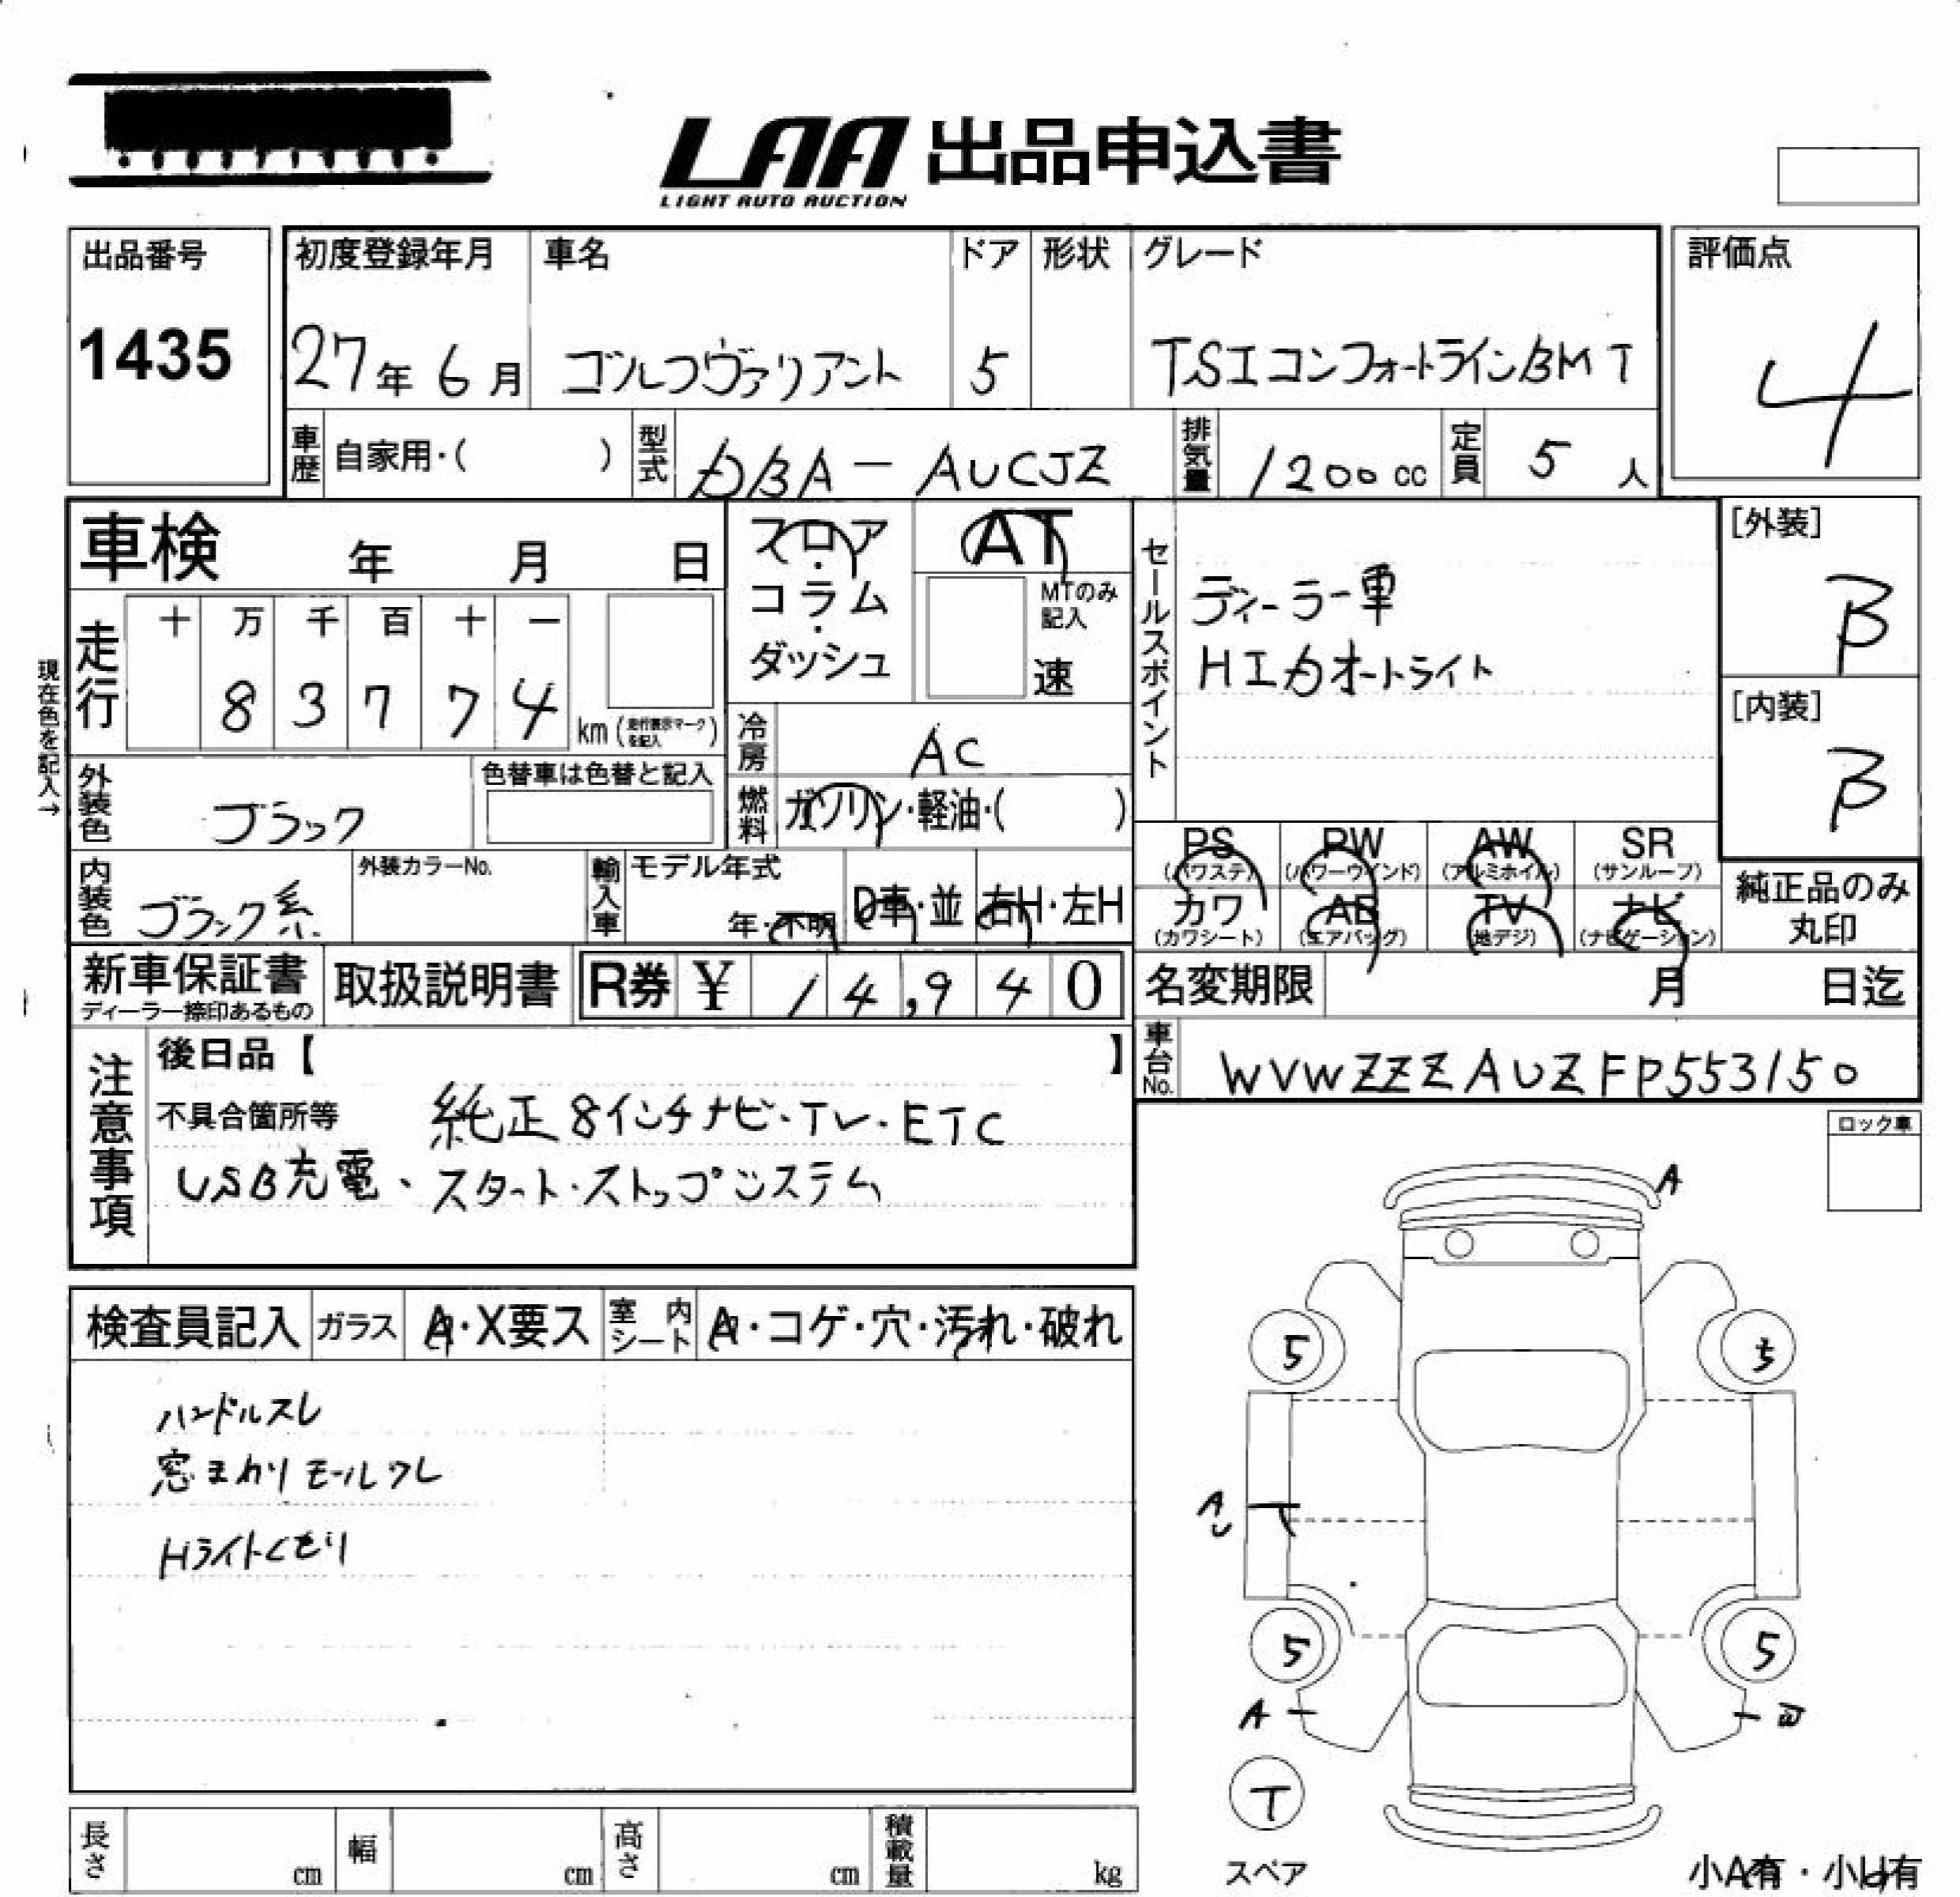 LAA 出品申込書
LIGHT AUTO AUCTION
出品番号
1435
初度登録年月 車名 ドア 形状 グレード
27年 6月 ゴルフヴァリアント 5 TSIコンフォートラインBMT
評価点
4
車歴 自家用・( ) 型式 DBA-AUCJZ 排気量 1200cc 定員 5人
車検 年 月 日
フロア・コラム・ダッシュ
AT
MTのみ記入
速
現在色を記入→
走行 十 万 千 百 十 一
8 3 7 7 4 km (走行表示マークを記入)
冷房 AC
燃料 ガソリン・軽油・( )
セールスポイント
ディーラー車
HIDオートライト
[外装]
B
[内装]
B
外装色 ブラック 色替車は色替と記入
内装色 ブラック系 外装カラーNo. 輸入車 モデル年式 年・不明 D車・並 右H・左H
PS (パワステ) PW (パワーウインド) AW (アルミホイル) SR (サンルーフ)
カワ (カワシート) AB (エアバッグ) TV (地デジ) ナビ (ナビゲーション)
純正品のみ
丸印
新車保証書 ディーラー捺印あるもの 取扱説明書 R券 ¥ 14,940
名変期限 月 日迄
車台No. WVWZZZAUZFP553150
注意事項
後日品【 】
不具合箇所等 純正8インチナビ・TV・ETC
USB充電、スタート・ストップシステム
ロック車
検査員記入 ガラス A・X要ス 室内シート A・コゲ・穴・汚れ・破れ
ハンドルスレ
窓まわりモールワレ
Hライトくもり
A
5 5
A
U
5 5
A W
T
スペア
小A有・小U有
長さ cm 幅 cm 高さ cm 積載量 kg